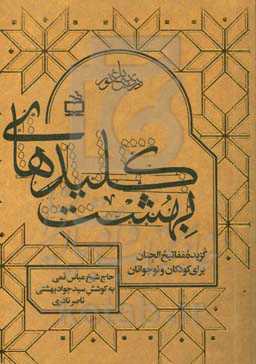 کلیدهای
بهشت
گزیده مفاتیح الجنان
برای کودکان و نوجوانان
حاج شیخ عباس قمی
به کوشش سید جواد بهشتی
ناصر نادری